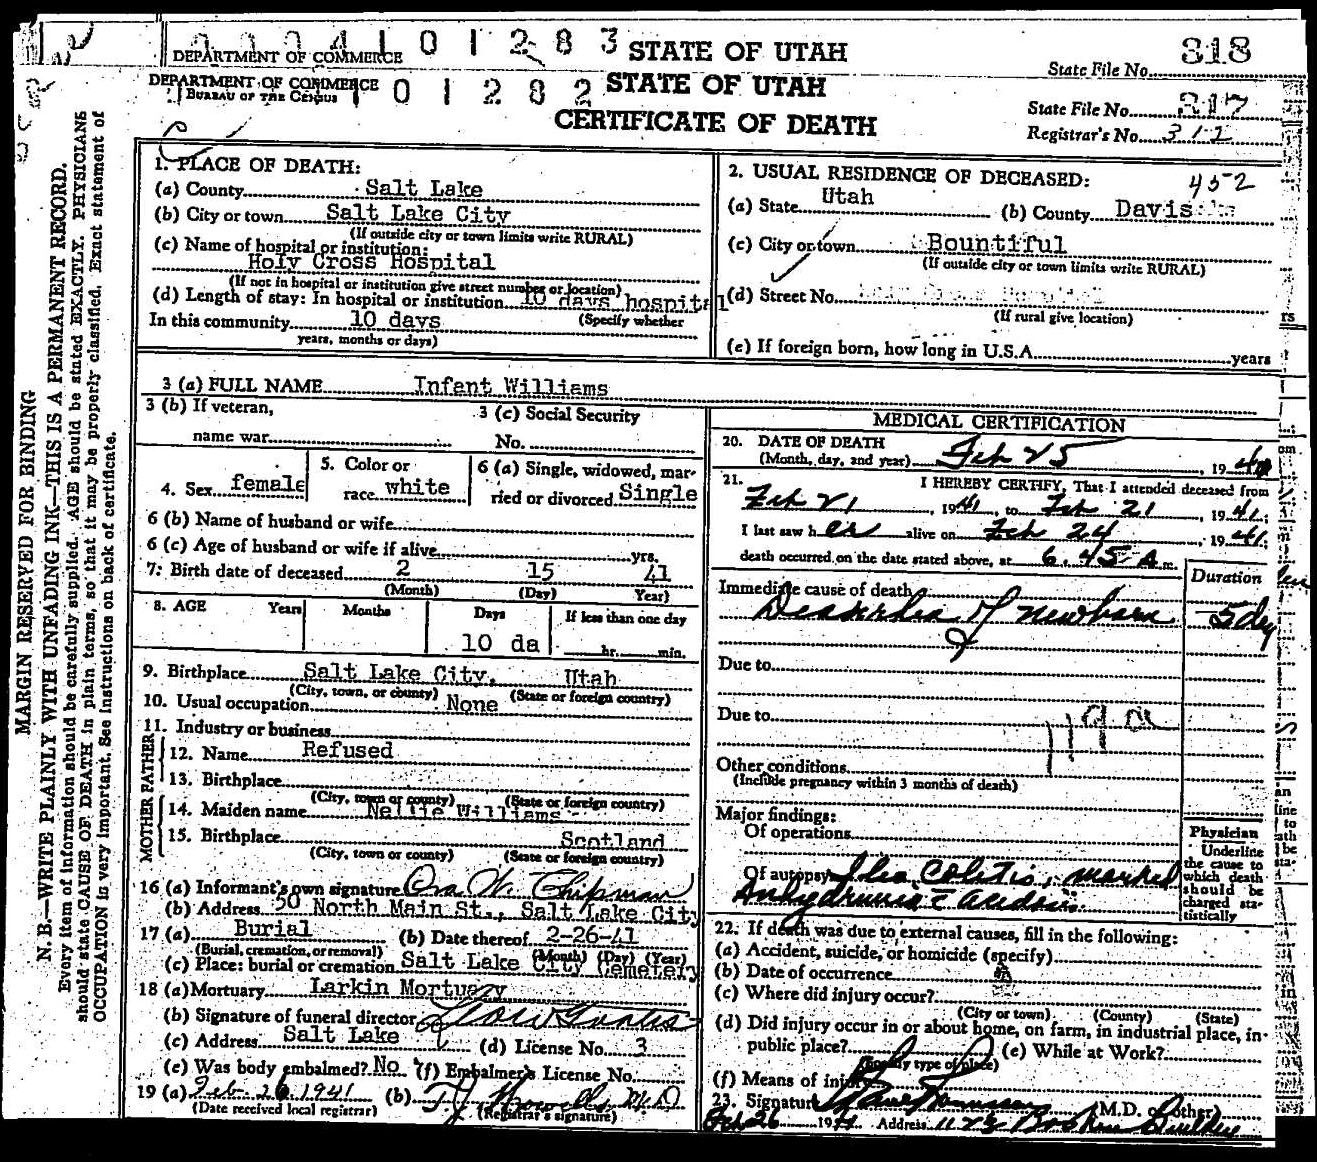 DEPARTMENT OF COMMERCE 0 1 2 8 3 STATE OF UTAH State File No. 318
DEPARTMENT OF COMMERCE
BUREAU OF THE CENSUS 1 0 1 2 8 2 STATE OF UTAH State File No. 317
CERTIFICATE OF DEATH Registrar's No. 312
MARGIN RESERVED FOR BINDING
N. B.—WRITE PLAINLY WITH UNFADING INK—THIS IS A PERMANENT RECORD.
Every item of information should be carefully supplied. AGE should be stated EXACTLY. PHYSICIANS
should state CAUSE OF DEATH in plain terms, so that it may be properly classified. Exact statement of
OCCUPATION is very important. See instructions on back of certificate.
1. PLACE OF DEATH:
(a) County Salt Lake
(b) City or town Salt Lake City
(If outside city or town limits write RURAL)
(c) Name of hospital or institution:
Holy Cross Hospital
(If not in hospital or institution give street number or location)
(d) Length of stay: In hospital or institution 10 days hospital
(Specify whether
In this community 10 days
years, months or days)
2. USUAL RESIDENCE OF DECEASED: 452
(a) State Utah (b) County Davis
(c) City or town Bountiful
(If outside city or town limits write RURAL)
(d) Street No.
(If rural give location)
(e) If foreign born, how long in U.S.A. years
3 (a) FULL NAME Infant Williams
3 (b) If veteran,
name war
3 (c) Social Security
No.
4. Sex female
5. Color or
race white
6 (a) Single, widowed, mar-
ried or divorced Single
6 (b) Name of husband or wife
6 (c) Age of husband or wife if alive yrs.
7. Birth date of deceased 2 15 41
(Month) (Day) Year)
8. AGE Years Months Days If less than one day
10 da hr. min.
9. Birthplace Salt Lake City, Utah
(City, town, or county) (State or foreign country)
10. Usual occupation None
11. Industry or business
FATHER
12. Name Refused
13. Birthplace
(City, town or county) (State or foreign country)
MOTHER
14. Maiden name Nellie Williams
15. Birthplace Scotland
(City, town or county) (State or foreign country)
16 (a) Informant's own signature Ora W. Chipman
(b) Address 50 North Main St., Salt Lake City
17 (a) Burial (b) Date thereof 2-26-41
(Burial, cremation, or removal) (Month) (Day) (Year)
(c) Place: burial or cremation Salt Lake City Cemetery
18 (a) Mortuary Larkin Mortuary
(b) Signature of funeral director
(c) Address Salt Lake (d) License No. 3
(e) Was body embalmed? No (f) Embalmer's License No.
19 (a) Feb. 26 1941 (b) M D
(Date received local registrar) (Registrar's signature)
MEDICAL CERTIFICATION
20. DATE OF DEATH
(Month, day, and year) Feb 25, 1941
21. I HEREBY CERTIFY, That I attended deceased from
Feb 21, 1941, to Feb 21, 1941;
I last saw her alive on Feb 24, 1941;
death occurred on the date stated above, at 6:45 A m.
Duration
Immediate cause of death
Diarrhea of newborn 5 day
Due to
Due to
119 a
Other conditions
(Include pregnancy within 3 months of death)
Major findings:
Of operations
Of autopsy Ileo Colitis, marked
Anhydremia c acidosis
Physician
Underline
the cause to
which death
should be
charged sta-
tistically
22. If death was due to external causes, fill in the following:
(a) Accident, suicide, or homicide (specify)
(b) Date of occurrence
(c) Where did injury occur?
(City or town) (County) (State)
(d) Did injury occur in or about home, on farm, in industrial place, in
public place? (e) While at Work?
(Specify type of place)
(f) Means of injury
23. Signature (M.D. or other)
Feb 26 1941 Address